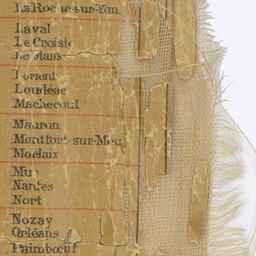 La Roche-sur-Yon
Laval
Le Croisic
Le Mans
Lorient
Loudéac
Machecoul
Mauron
Montfort-sur-Meu
Morlaix
Mur
Nantes
Nort
Nozay
Orléans
Paimbœuf